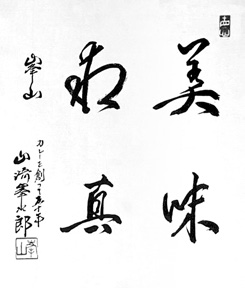 美味
求真
峯山
カレーを創って五十年
山崎峯次郎